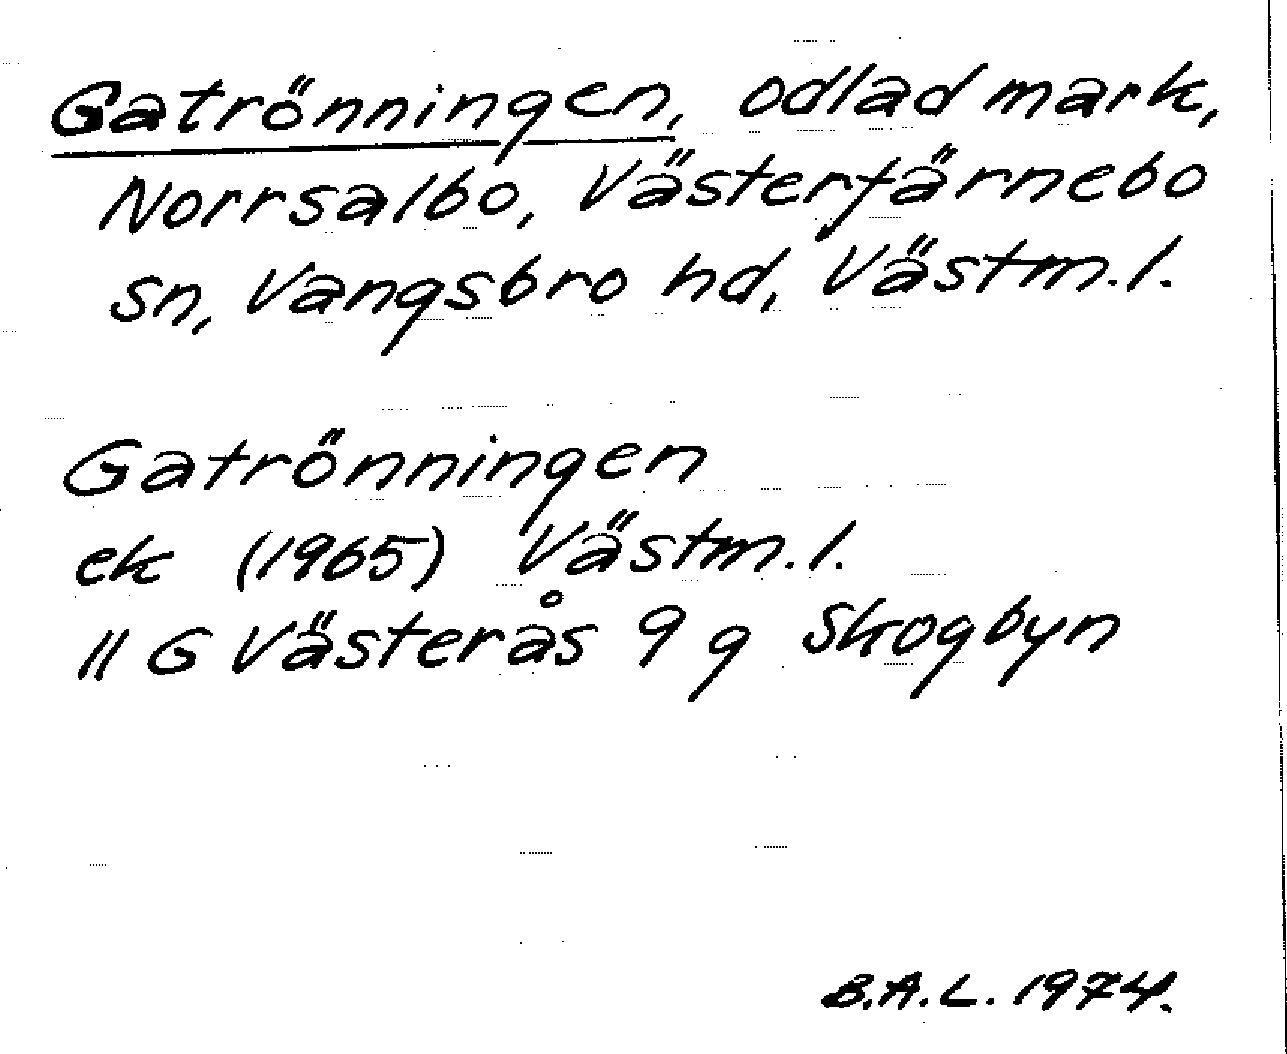 Gatrönningen, odlad mark,
Norrsalbo, Västerfärnebo
sn, Vangsbro hd, Västm.l.
Gatrönningen
ek (1965) Västm.l.
11 G Västerås 9 g Skogbyn
B.A.L. 1974.